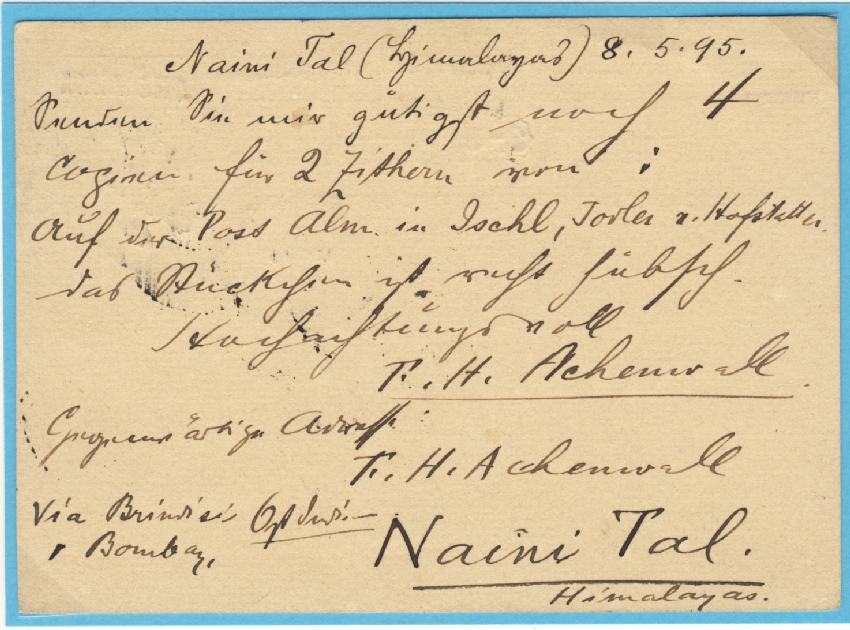 Naini Tal (Himalayas) 8. 5. 95.
Senden Sie mir gütigst noch 4
Copien für 2 Zithern von :
Auf der Post Alm in Ischl, Jodler v. Hofstetter.
das Stückchen ist recht hübsch.
Hochachtungsvoll
F. H. Achenwall.
Gegenwärtige Adresse:
F. H. Achenwall
Via Brindisi Ostindien
, Bombay,
Naini Tal.
Himalayas.